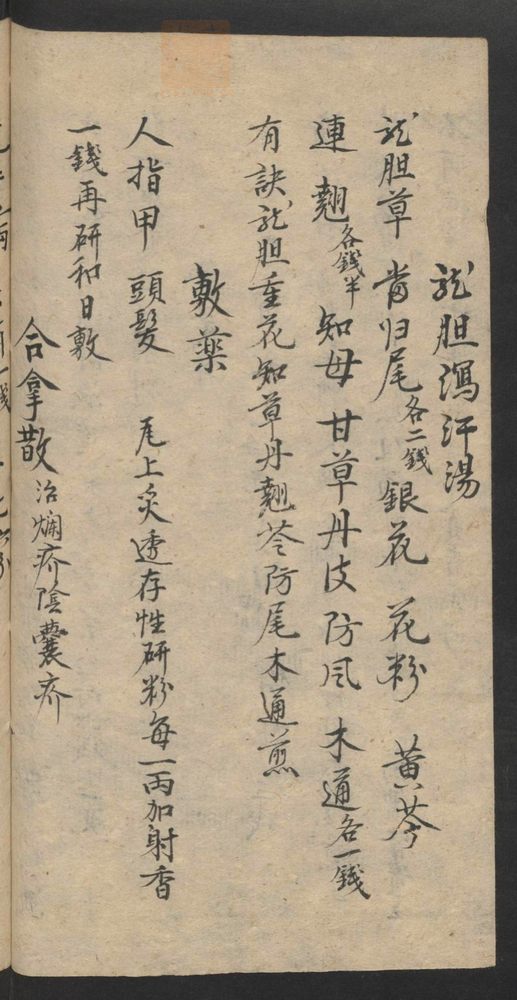 龙胆瀉汗湯
龙胆草 當归尾各二錢 銀花 花粉 黄芩
連翹各錢半 知母 甘草 丹皮 防风 木通各一錢
有訣龙胆重花知草丹翹芩防尾木通煎
敷薬
人指甲 頭髮 瓦上炙透存性研粉每一両加射香
一錢再研和日敷
合拿散 治爛疥陰囊疥